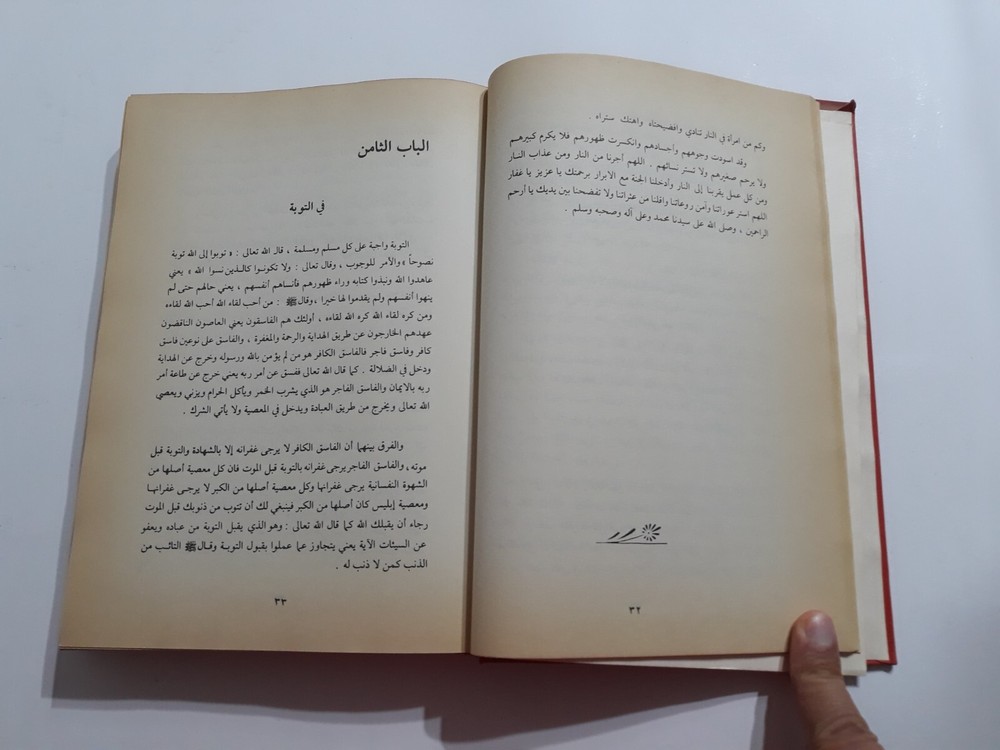 وكم من امرأة في النار تنادي وافضيحتاه واهتك ستراه .
وقد اسودت وجوههم وأجسادهم وانكسرت ظهورهم فلا يكرم كبيرهم
ولا يرحم صغيرهم ولا تستر نسائهم . اللهم أجرنا من النار ومن عذاب النار
ومن كل عمل يقربنا إلى النار وأدخلنا الجنة مع الابرار برحمتك يا عزيز يا غفار
اللهم استر عوراتنا وآمن روعاتنا واقلنا من عثراتنا ولا تفضحنا بين يديك يا أرحم
الراحمين ، وصلى الله على سيدنا محمد وعلى آله وصحبه وسلم .
٣٢
الباب الثامن
في التوبة
التوبة واجبة على كل مسلم ومسلمة ، قال الله تعالى : « توبوا إلى الله توبة
نصوحاً » والأمر للوجوب ، وقال تعالى : ولا تكونوا كالذين نسوا الله » يعني
عاهدوا الله ونبذوا كتابه وراء ظهورهم فأنساهم أنفسهم ، يعني حالهم حتى لم
ينهوا أنفسهم ولم يقدموا لها خيرا ، وقال ﷺ : من أحب لقاء الله أحب الله لقاءه
ومن كره لقاء الله كره الله لقاءه ، أولئك هم الفاسقون يعني العاصون الناقضون
عهدهم الخارجون عن طريق الهداية والرحمة والمغفرة ، والفاسق على نوعين فاسق
كافر وفاسق فاجر فالفاسق الكافر هو من لم يؤمن بالله ورسوله وخرج عن الهداية
ودخل في الضلالة . كما قال الله تعالى ففسق عن أمر ربه يعني خرج عن طاعة أمر
ربه بالايمان والفاسق الفاجر هو الذي يشرب الخمر ويأكل الحرام ويزني ويعصي
الله تعالى ويخرج من طريق العبادة ويدخل في المعصية ولا يأتي الشرك .
والفرق بينهما أن الفاسق الكافر لا يرجى غفرانه إلا بالشهادة والتوبة قبل
موته ، والفاسق الفاجر يرجى غفرانه بالتوبة قبل الموت فان كل معصية أصلها من
الشهوة النفسانية يرجى غفرانها وكل معصية أصلها من الكبر لا يرجى غفرانها
ومعصية إبليس كان أصلها من الكبر فينبغي لك أن تتوب من ذنوبك قبل الموت
رجاء أن يقبلك الله كما قال الله تعالى : وهو الذي يقبل التوبة من عباده ويعفو
عن السيئات الآية يعني يتجاوز عما عملوا بقبول التوبة وقال ﷺ التائب من
الذنب كمن لا ذنب له .
٣٣